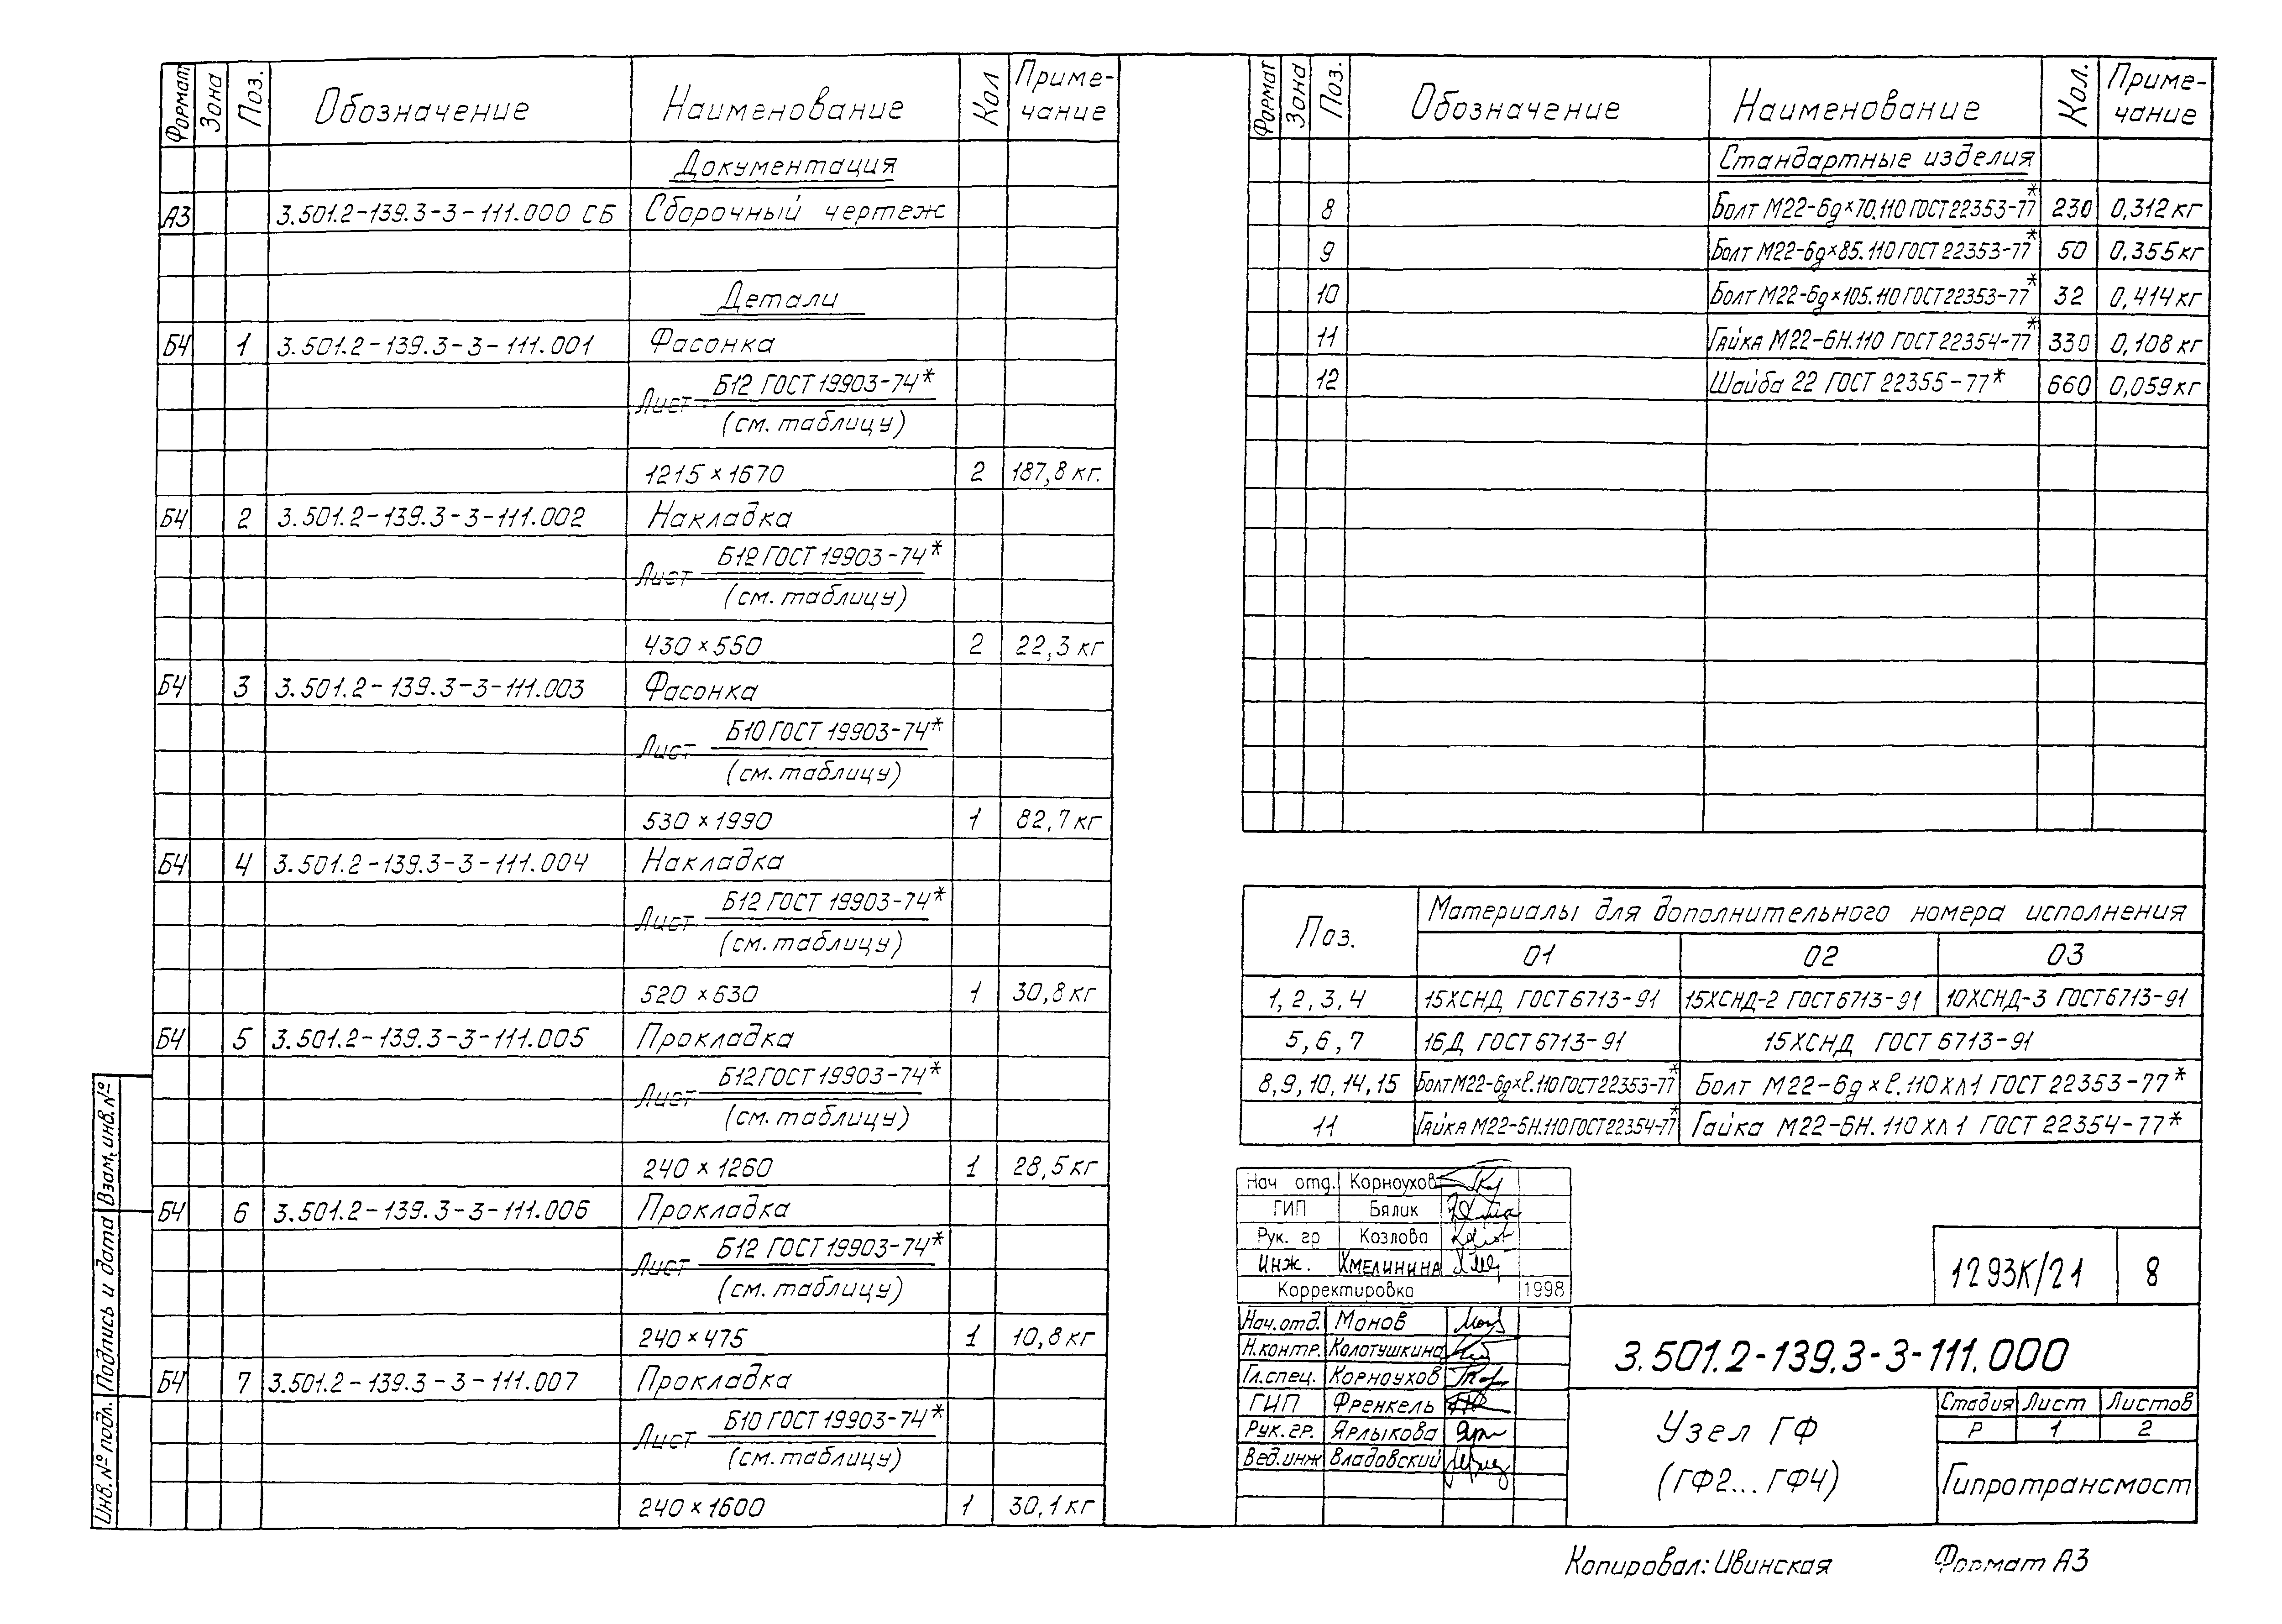 Формат Зона Поз. Обозначение Наименование Кол Приме-чание
Документация
А3 3.501.2-139.3-3-111.000 СБ Сборочный чертеж
Детали
Б4 1 3.501.2-139.3-3-111.001 Фасонка
Лист Б12 ГОСТ 19903-74*
(см. таблицу)
1215 × 1670 2 187,8 кг.
Б4 2 3.501.2-139.3-3-111.002 Накладка
Лист Б12 ГОСТ 19903-74*
(см. таблицу)
430 × 550 2 22,3 кг
Б4 3 3.501.2-139.3-3-111.003 Фасонка
Лист Б10 ГОСТ 19903-74*
(см. таблицу)
530 × 1990 1 82,7 кг
Б4 4 3.501.2-139.3-3-111.004 Накладка
Лист Б12 ГОСТ 19903-74*
(см. таблицу)
520 × 630 1 30,8 кг
Б4 5 3.501.2-139.3-3-111.005 Прокладка
Лист Б12 ГОСТ 19903-74*
(см. таблицу)
240 × 1260 1 28,5 кг
Б4 6 3.501.2-139.3-3-111.006 Прокладка
Лист Б12 ГОСТ 19903-74*
(см. таблицу)
240 × 475 1 10,8 кг
Б4 7 3.501.2-139.3-3-111.007 Прокладка
Лист Б10 ГОСТ 19903-74*
(см. таблицу)
240 × 1600 1 30,1 кг
Инв. № подл. Подпись и дата Взам. инв. №
Формат Зона Поз. Обозначение Наименование Кол. Приме-чание
Стандартные изделия
8 Болт М22-6g×70.110 ГОСТ 22353-77* 230 0,312 кг
9 Болт М22-6g×85.110 ГОСТ 22353-77* 50 0,355 кг
10 Болт М22-6g×105.110 ГОСТ 22353-77* 32 0,414 кг
11 Гайка М22-6Н.110 ГОСТ 22354-77* 330 0,108 кг
12 Шайба 22 ГОСТ 22355-77* 660 0,059 кг
Поз. Материалы для дополнительного номера исполнения
01 02 03
1, 2, 3, 4 15ХСНД ГОСТ 6713-91 15ХСНД-2 ГОСТ 6713-91 10ХСНД-3 ГОСТ 6713-91
5, 6, 7 16Д ГОСТ 6713-91 15ХСНД ГОСТ 6713-91
8, 9, 10, 14, 15 Болт М22-6g×ℓ.110 ГОСТ 22353-77* Болт М22-6g×ℓ.110 ХЛ1 ГОСТ 22353-77*
11 Гайка М22-6Н.110 ГОСТ 22354-77* Гайка М22-6Н.110 ХЛ1 ГОСТ 22354-77*
Нач отд. Корноухов
ГИП Бялик
Рук. гр Козлова
Инж. Хмелинина
Корректировка 1998
1293К/21 8
Нач. отд. Монов
Н. контр. Колотушкина
Гл. спец. Корноухов
ГИП Френкель
Рук. гр. Ярлыкова
Вед. инж Владовский
3.501.2-139.3-3-111.000
Узел ГФ
(ГФ2...ГФ4)
Стадия Лист Листов
Р 1 2
Гипротрансмост
Копировал: Ивинская Формат А3